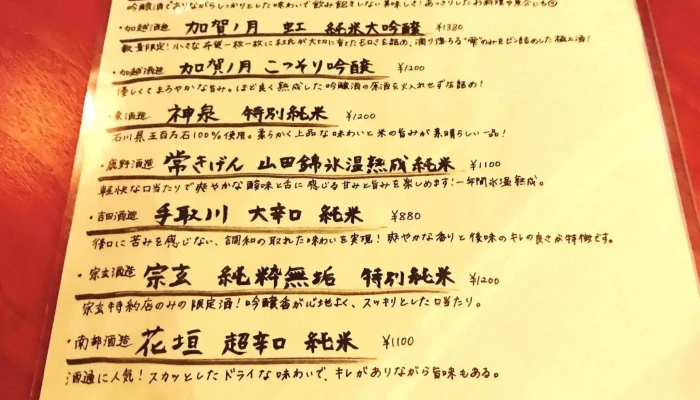 吟醸酒でありながらしっかりとした味わいで飲み飽きしない美味しさ!あっさりしたお料理や魚介にも◎
・加越酒造 加賀ノ月 虹 純米大吟醸 ¥1380
数量限定!小さな舟袋一枚一枚に杜氏が大切に育てたモロミを詰め、滴り落ちる"雫"のみをビン詰めした極上酒!
・加越酒造 加賀ノ月 こっそり吟醸 ¥1200
優しくてまろやかな旨み。ほど良く熟成した吟醸酒の原酒を火入れせず生詰め!
・東酒造 神泉 特別純米 ¥1200
石川県五百万石100%使用。柔らかく上品な味わいと米の旨みが素晴らしい一品!
・鹿野酒造 常きげん 山田錦氷温熟成純米 ¥1100
軽快な口当たりで爽やかな酸味と舌に感じる甘みと旨みを楽しめます!一年間氷温熟成。
・吉田酒造 手取川 大辛口 純米 ¥880
後口に苦みを感じない、調和の取れた味わいを実現!爽やかな香りと後味のキレの良さが特徴です。
・宗玄酒造 宗玄 純粋無垢 特別純米 ¥1200
宗玄特約店のみの限定酒!吟醸香が心地よく、スッキリとした口当たり。
・南部酒造 花垣 超辛口 純米 ¥1100
酒通に人気!スカッとしたドライな味わいで、キレがありながら旨味もある。